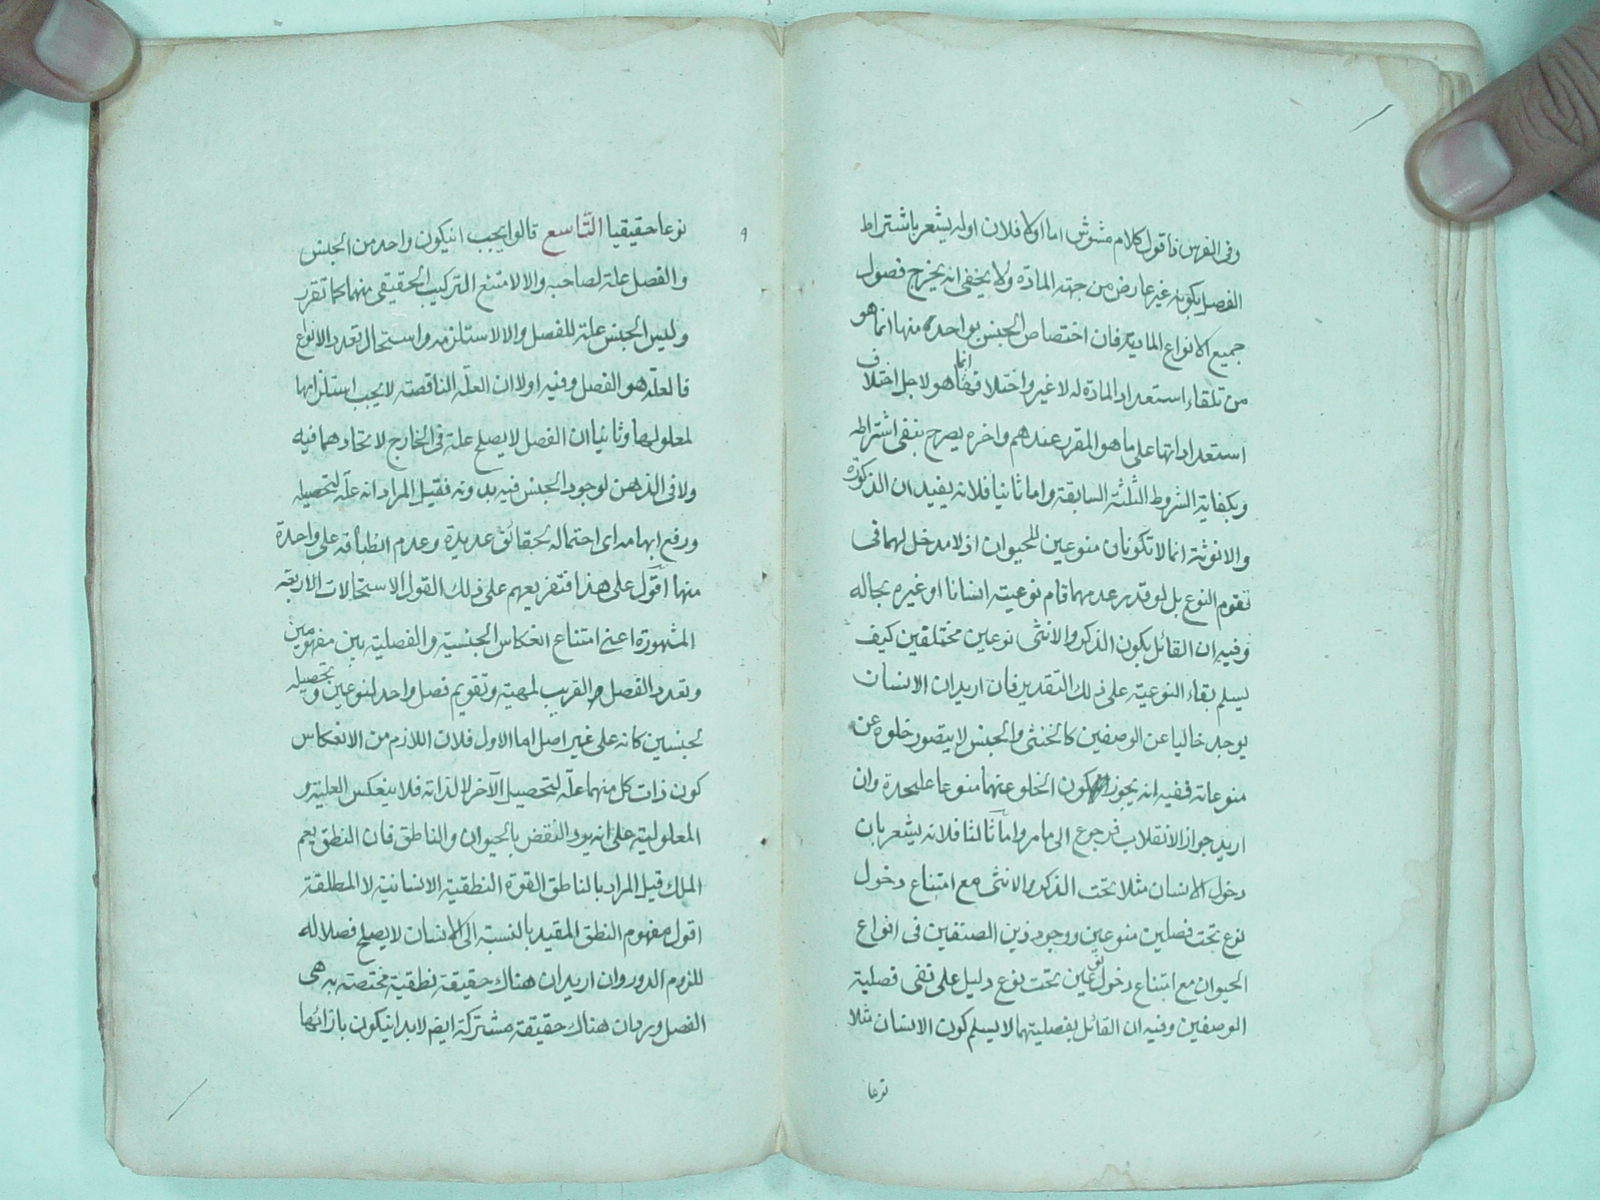 وفى الفرس فاقول كلام مشوش اما اولا فلان اوله يشعر باشتراط
الفصل بكونه غير عارض من جهته المادة ولا يخفى انه يخرج فصول
جميع الانواع المادية فان اختصاص الجنس بواحدة منها انما هو
من تلقاء استعداد المادة له لا غير واختلافها انما هو لاجل اختلاف
استعداداتها على ما هو المقرر عندهم واخره يصرح بنفى اشتراطه
وبكفاية الشروط الثلثة السابقة واما ثانيا فلانه يفيد ان الذكورة
والانوثة انما لا تكونان منوعين للحيوان اذ لا مدخل لهما فى
تقوم النوع بل لو قدر عدمهما قام نوعيته انسانا او غيره بحاله
وفيه ان القائل بكون الذكر والانثى نوعين مختلفين كيف
يسلم بقاء النوعية على ذلك التقدير فان اريد ان الانسان
يوجد خاليا عن الوصفين كالخنثى والجنس لا يتصور خلوه عن
منوعاته ففيه انه يجوز كون الخلو عنهما منوعا عليحدة وان
اريد جواز الانقلاب فرجوع الى ما مر واما ثالثا فلانه يشعر بان
دخول الانسان مثلا تحت الذكر والانثى مع امتناع دخول
نوع تحت فصلين منوعين ووجود ذين الصنفين فى انواع
الحيوان مع امتناع دخول نوعين تحت نوع دليل على نفى فصلية
الوصفين وفيه ان القائل بفصليتهما لا يسلم كون الانسان مثلا
نوعا
٩
نوعا حقيقيا التاسع قالوا يجب ان يكون واحد من الجنس
والفصل علة لصاحبه والا لامتنع التركيب الحقيقى منهما كما تقرر
وليس الجنس علة للفصل والا لاستلزمه واستحال تعدد الانواع
فالعلة هو الفصل وفيه اولا ان العلة الناقصة لا يجب استلزامها
لمعلولها وثانيا ان الفصل لا يصلح علة فى الخارج لاتحادهما فيه
ولا فى الذهن لوجود الجنس فيه بدونه فقيل المراد انه علة لتحصيله
ورفع ابهامه اى احتماله لحقائق عديدة وعدم انطباقه على واحدة
منها اقول على هذا فتفريعهم على ذلك القول الاستحالات الاربعة
المشهورة اعنى امتناع انعكاس الجنسية والفصلية بين مفهومين
وتعدد الفصل القريب لمهية وتقويم فصل واحد لنوعين وتحصيله
لجنسين كانه على غير اصل اما الاول فلان اللازم من الانعكاس
كون ذات كل منهما علة لتحصيل الآخر لا لذاته فلا ينعكس العلية و
المعلولية على انه يرد النقض بالحيوان والناطق فان النطق يعم
الملك قيل المراد بالناطق القوة النطقية الانسانية لا المطلقة
اقول مفهوم النطق المقيد بالنسبة الى الانسان لا يصلح فصلا له
للزوم الدور وان اريد ان هناك حقيقة نطقية مختصة به هى
الفصل ورد ان هناك حقيقة مشتركة ايضا لابد ان يكون بازائها